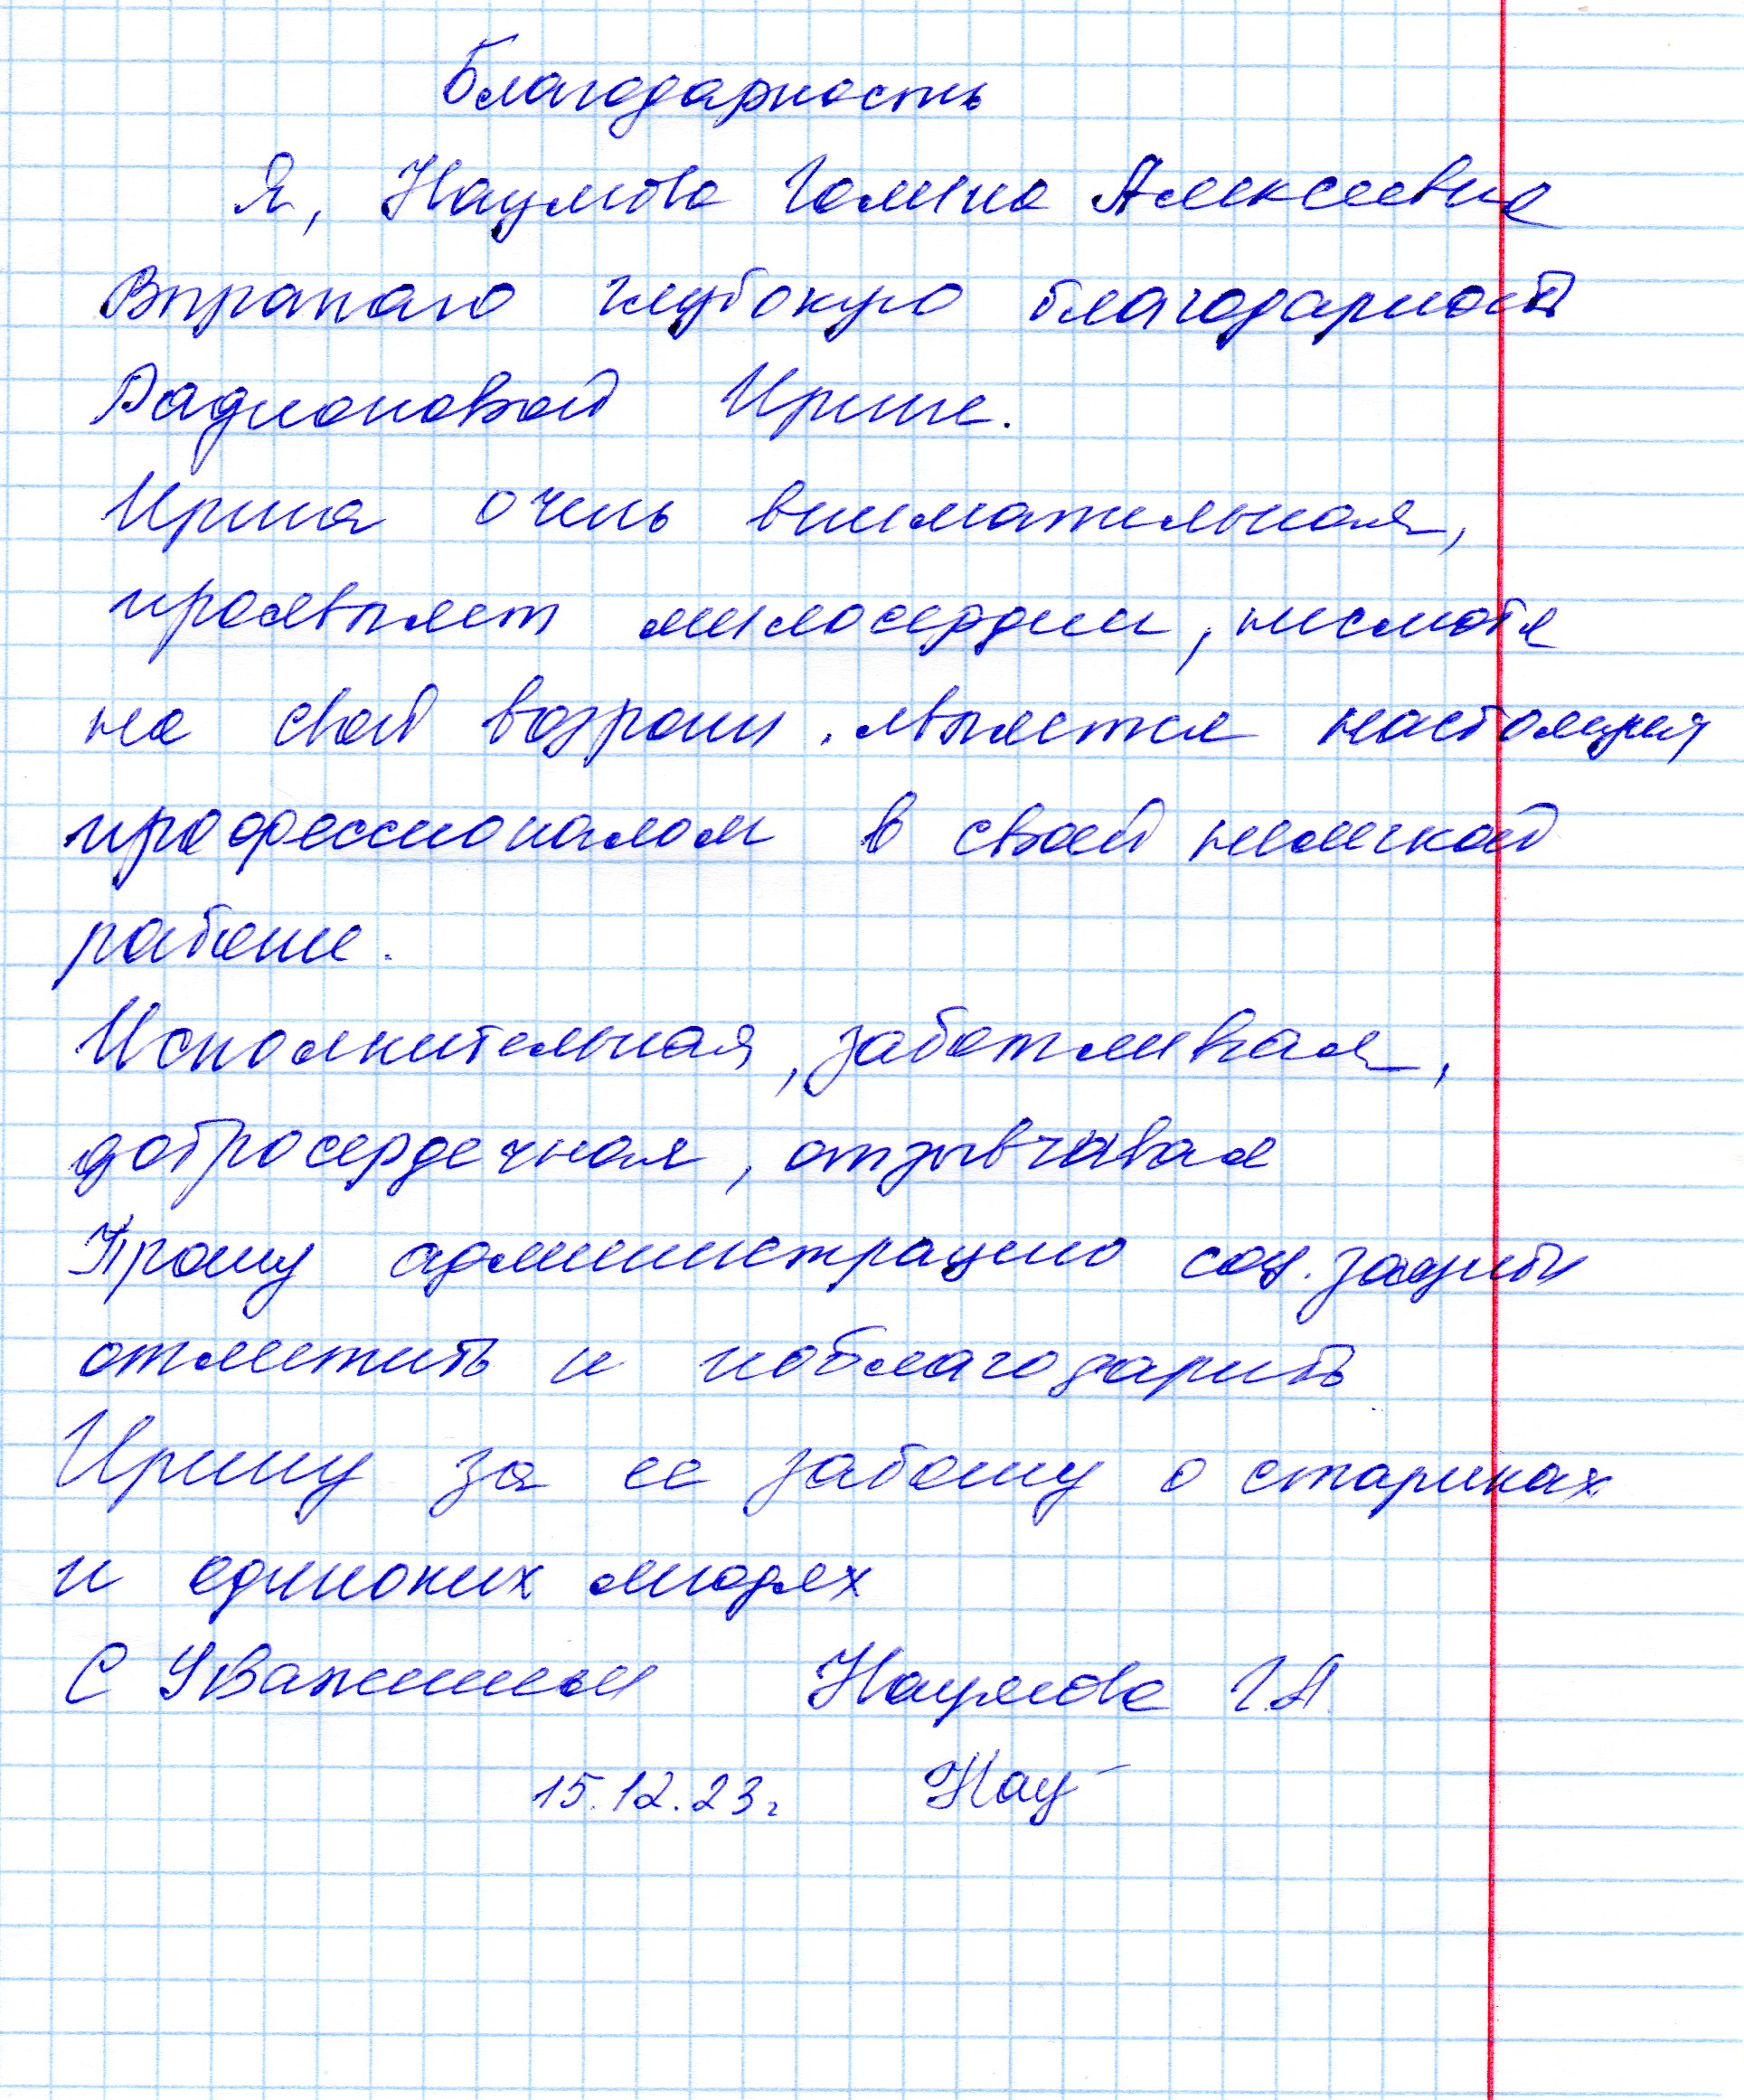 Благодарность
Я, Наумова Галина Алексеевна
Выражаю глубокую благодарность
Радионовой Ирине.
Ирина очень внимательная,
проявляет милосердие, несмотя
на свой возраст. является настоящим
профессионалом в своей нелегкой
работе.
Исполнительная, заботливая,
добросердечная, отзывчивая
Прошу администрацию соц. защиты
отметить и поблагодарить
Ирину за ее заботу о стариках
и одиноких людях
С Уважением Наумова Г.А.
15.12.23г Нау